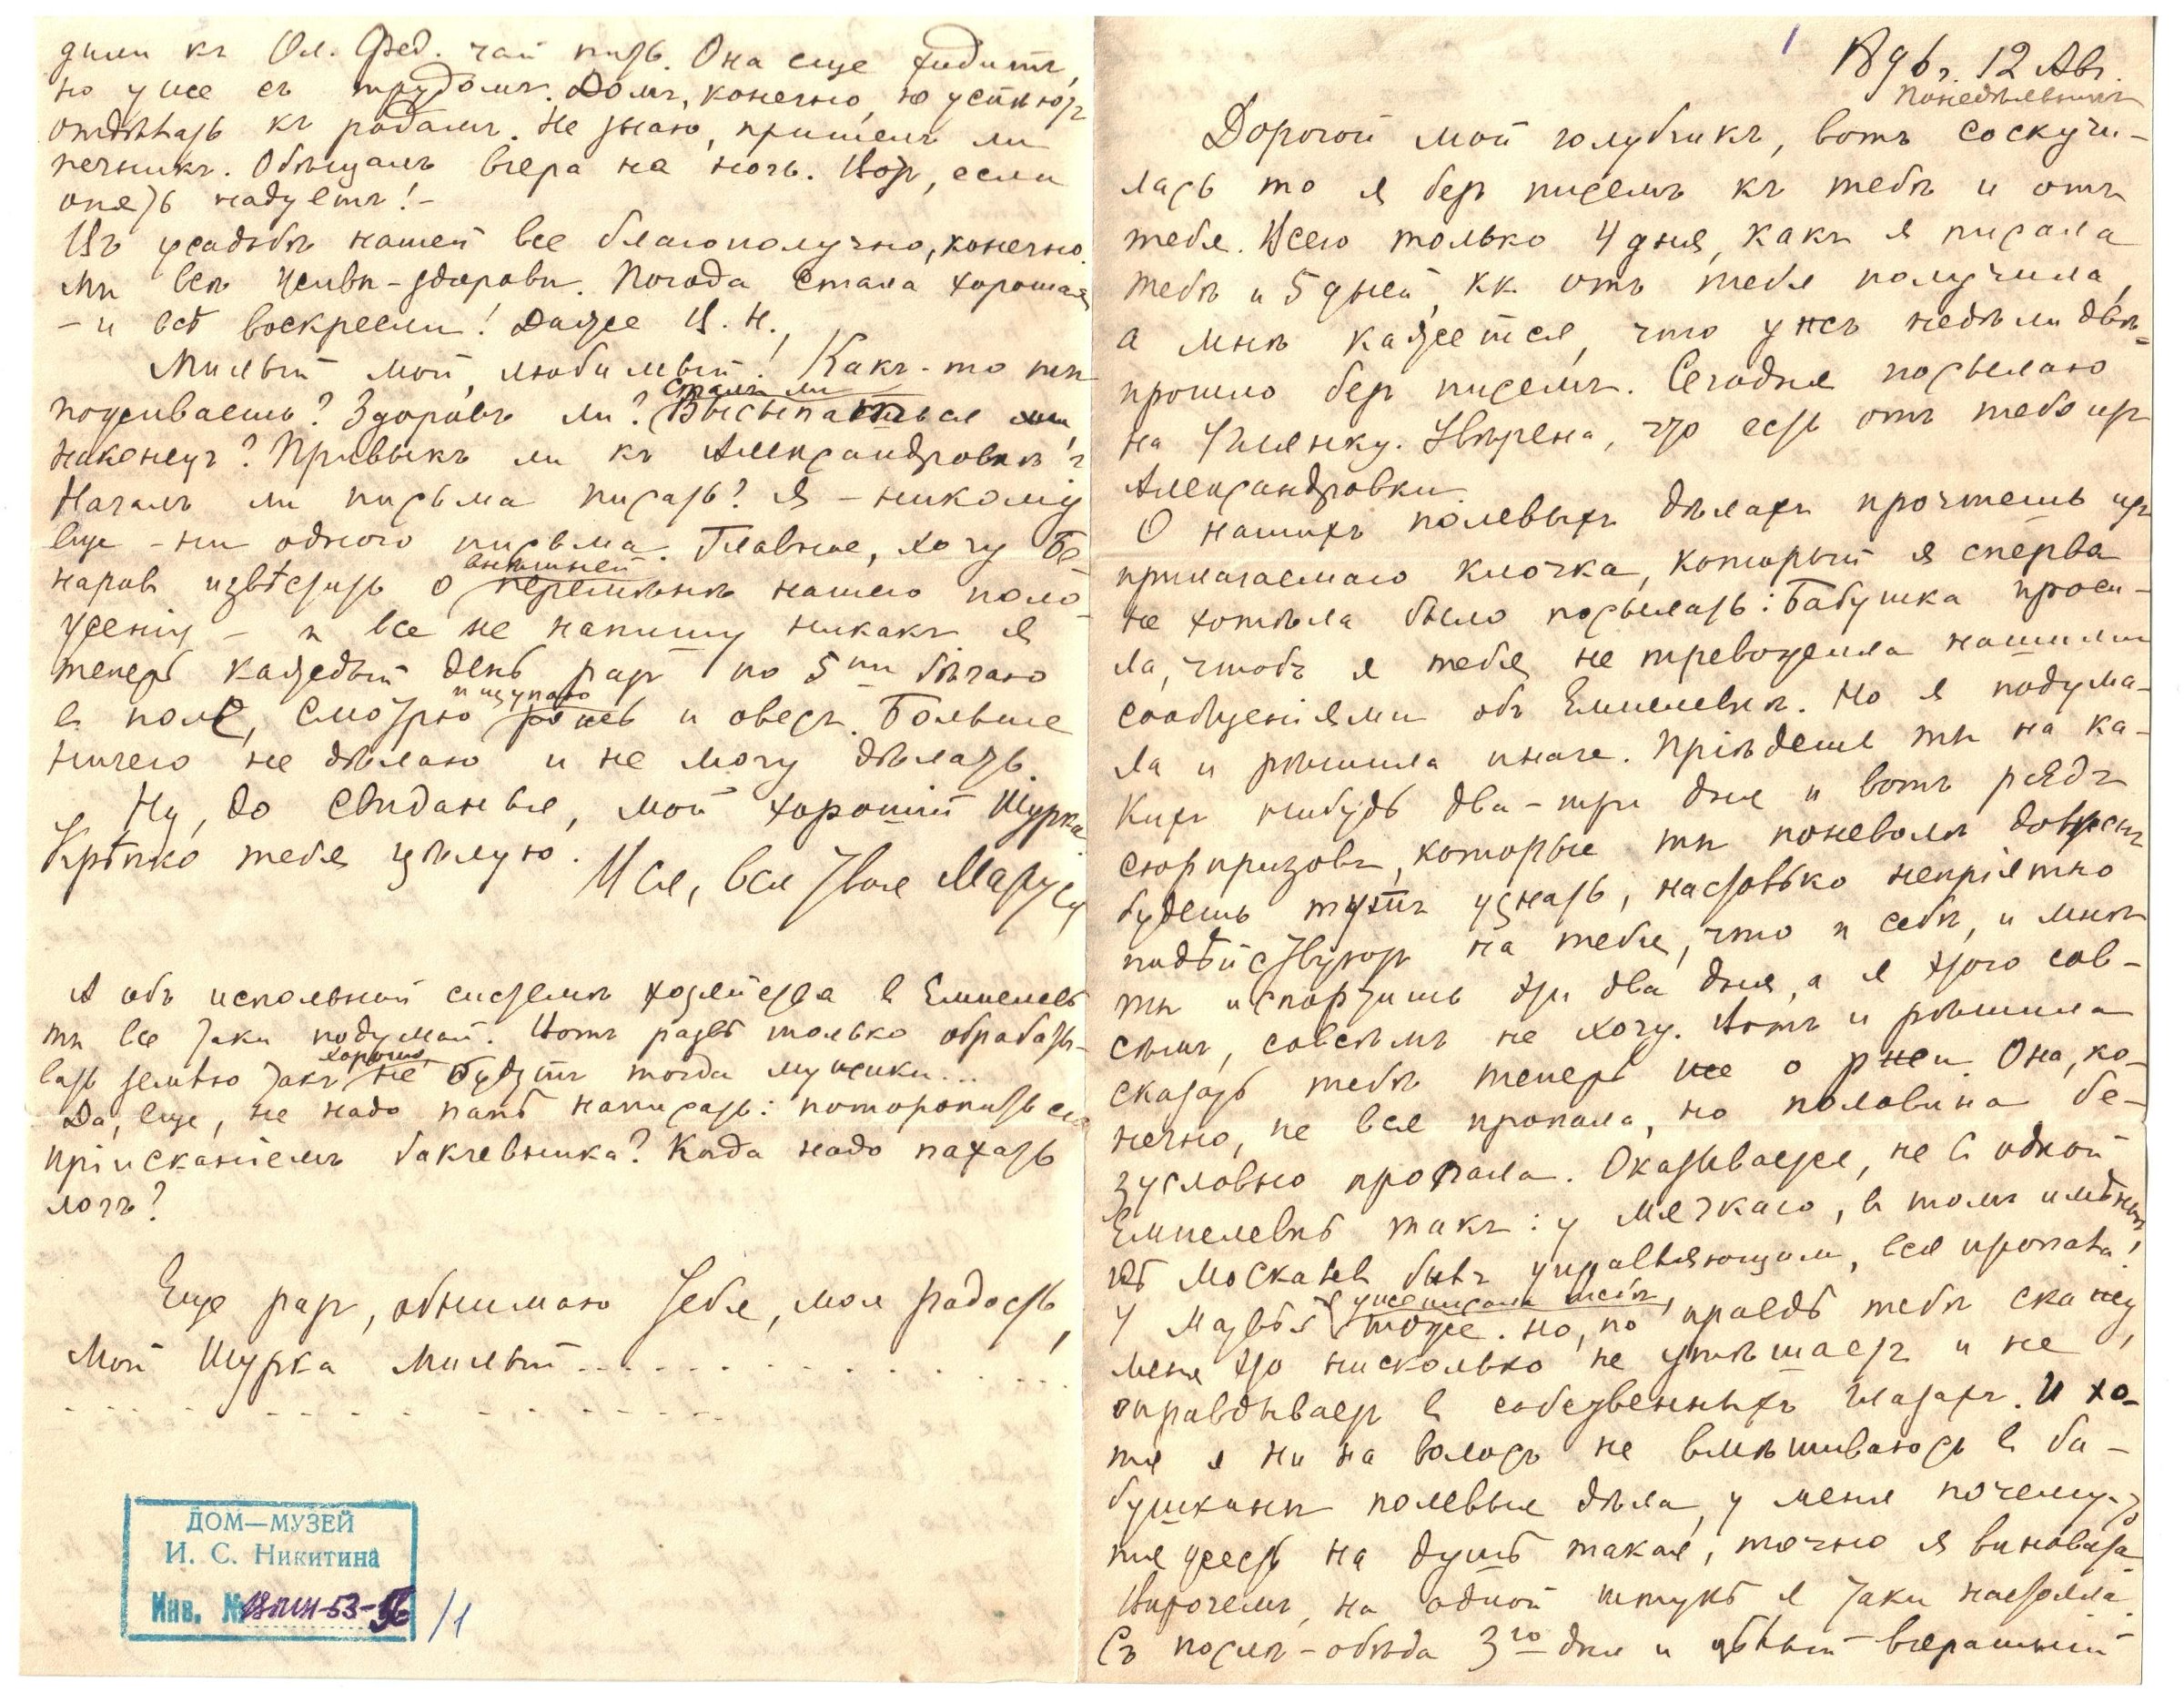 1
1896 г. 12 Авг.
Понедѣльникъ
Дорогой мой голубчикъ, вотъ соскучи-
лась то я безъ писемъ къ тебѣ и отъ
тебя. Всего только 4 дня, какъ я писала
тебѣ и 5 дней, кк отъ тебя получила,
а мнѣ кажется, что ужъ недѣли двѣ
прошло безъ писемъ. Сегодня посылаю
на Углянку. Увѣрена, что есть отъ тебя изъ
Александровки.
О нашихъ полевыхъ дѣлахъ прочтешь изъ
прилагаемаго клочка, который я сперва
не хотѣла было посылать: Бабушка проси-
ла, чтобъ я тебя не тревожила нашими
сообщеніями объ Емпелевкѣ. Но я подума-
ла и рѣшила иначе. Пріѣдешь ты на ка-
кихъ нибудь два-три дня и вотъ рядъ
сюрпризовъ, которые ты поневолѣ долженъ
будешь тутъ узнать, настолько непріятно
подѣйствуютъ на тебя, что и себѣ, и мнѣ
ты испортишь эти два дня, а я этого сов-
сѣмъ, совсѣмъ не хочу. Вотъ и рѣшила
сказать тебѣ теперь же о ржи. Она, ко-
нечно, не вся пропала, но половина бе-
зусловно пропала. Оказывается, не въ одной
Емпелевкѣ такъ: у Мягкаго, въ томъ имѣньи,
гдѣ Москалев былъ управляющимъ, вся пропала!
У Мазья я уже писала тебѣ,
тоже. Но, по правдѣ тебѣ скажу,
меня это нисколько не утѣшаетъ и не
оправдываетъ въ собственныхъ глазахъ. И хо-
тя я ни на волосъ не вмѣшиваюсь въ ба-
бушкины полевыя дѣла, у меня почему-то
тяжесть на душѣ такая, точно я виновата
Впрочемъ, на одной штукѣ я таки настояла.
Съ послѣ-обѣда 3го дня и цѣлый вчерашній
дили къ Ол. Фед. чай пить. Она еще ходитъ,
но уже съ трудомъ. Домъ, конечно, не успѣютъ
отдѣлать къ родамъ. Не знаю, пришелъ ли
печникъ. Обѣщалъ вчера на ночь. Вотъ, если
опять надуетъ! –
Въ усадьбѣ нашей все благополучно, конечно.
Мы всѣ живы-здоровы. Погода стала хорошая
– и всѣ воскресли! Даже В. Н.,
Милый мой, любимый! Какъ-то ты
поживаешь? Здоровъ ли? Сталъ ли Высыпаться ли,
наконецъ? Привыкъ ли къ Александровкѣ?
Началъ ли письма писать? Я – никому
еще – ни одного письма. Главное, хочу Бе-
наров извѣстить о внѣшней перемѣнѣ нашего поло-
женія – и все не напишу никакъ я
теперь каждый день разъ по 5ти бѣгаю
въ поле, смотрю и щупаю рожь и овесъ. Больше
ничего не дѣлаю и не могу дѣлать.
Ну, до свиданья, мой хорошій Шурка
Крѣпко тебя цѣлую.
Вся, вся твоя Маруся
А объ испольной системѣ хозяйства въ Емпелевкѣ
ты все таки подумай. Вотъ развѣ только обрабаты-
вать землю такъ хорошо не будутъ тогда мужики...
Да, еще, не надо папѣ написать: поторопиться съ
пріисканіемъ баклевника? Когда надо пахать
логъ?
Еще разъ, обнимаю тебя, моя радость,
мой Шурка милый . . . . . . . . . . . . . .
. . . . . . . . . . . . . .
ДОМ—МУЗЕЙ
И. С. Никитина
Инв. № ВЛМ-53-56 /1